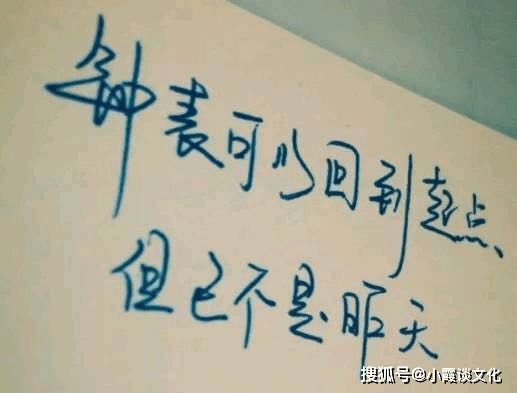 钟表可以回到起点、
但已不是昨天
搜狐号@小霞谈文化